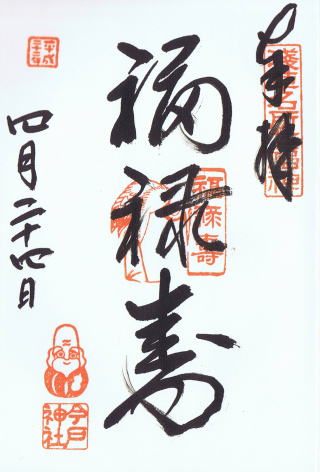 奉拝
淺草名所七福神
福禄寿
福禄壽
平成
四月二十四日
今戸神社